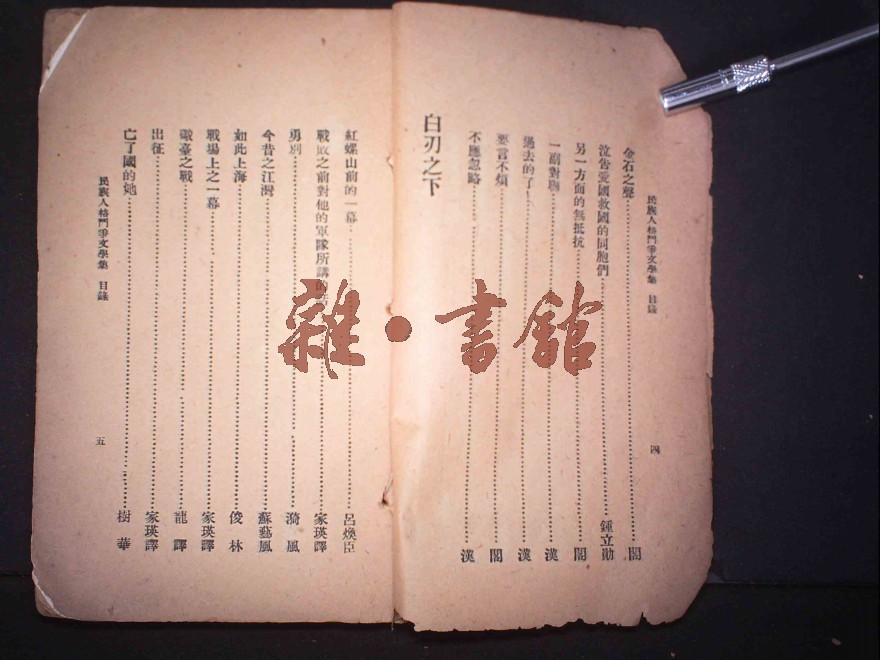 民族人格鬥爭文學集 目錄
四
金石之聲 閣
泣告愛國救國的同胞們 鍾立勛
另一方面的無抵抗 閣
一副對聯 漢
過去的了 漢
要言不煩 閣
不應忽略 漢
白刃之下
紅螺山前的一幕 呂煥臣
戰敗之前對他的軍隊所講的 家瑛譯
勇別 漪風
今昔之江灣 蘇藝風
如此上海 俊林
戰場上之一幕 家瑛譯
礮臺之戰 龍譯
出征 家瑛譯
亡了國的她 樹華
民族人格鬥爭文學集 目錄
五
雜·書館